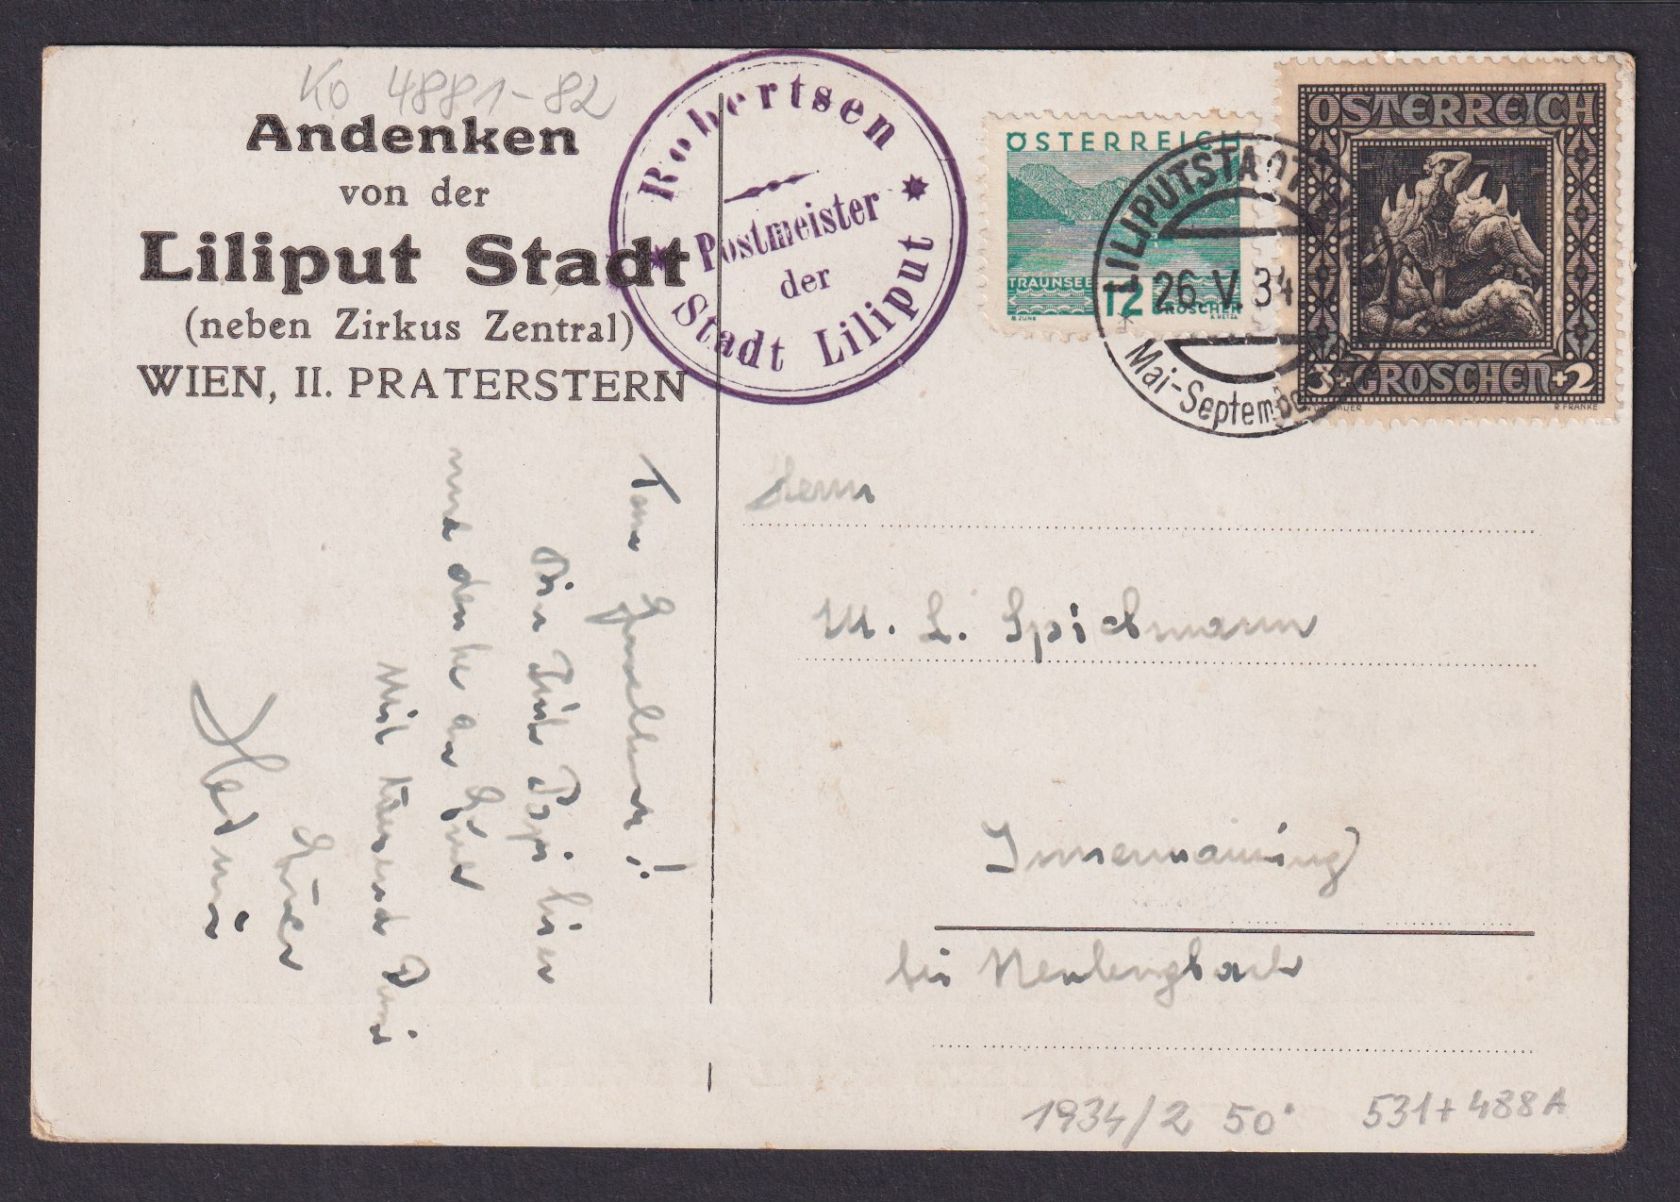 Ko 4881-82
Andenken
von der
Liliput Stadt
(neben Zirkus Zentral)
WIEN, II. PRATERSTERN
Robertsen
Postmeister
der
Stadt Liliput
ÖSTERREICH
TRAUNSEE
12 GROSCHEN
LILIPUTSTADT
26. V. 34
Mai-September
OSTERREICH
3+GROSCHEN+2
R. FRANKE
Herrn
M. L. Spielmann
Innermanzing
bei Neulengbach
und denke an Euch
Mit tausend
Euer
1934/2 50° 531+488A